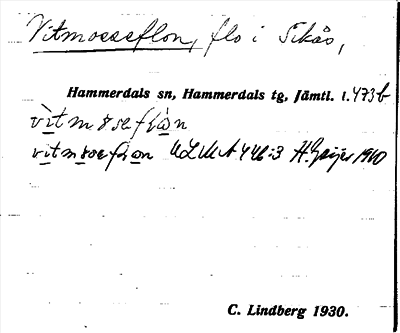 Vitmosseflon, flo i Sikås,
Hammerdals sn, Hammerdals tg, Jämtl. 1.473b
vitmoseflon
vitmosefon ULMA 446:3 H. Geijer 1910
C. Lindberg 1930.